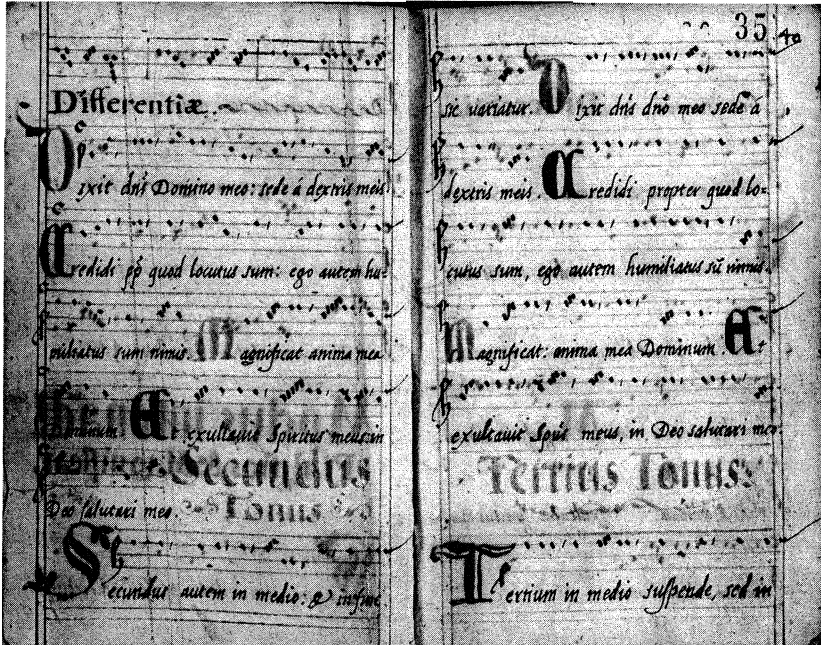 Differentiæ.
Dixit dns̃ Domino meo: sede á dextris meis
Credidi pp̃ quod locutus sum: ego autem hu-
miliatus sum nimis. Magnificat anima mea
Dominum Et exultavit Spiritus meus in
Secundus
Deo salutari meo. Tonus
Secundus autem in medio: & in fine
35
sic variatur. Dixit dns̃ dnõ meo sede á
dextris meis. Credidi propter quod lo-
cutus sum, ego autem humiliatus sũ nimis.
Magnificat: anima mea Dominum. Et
exultavit Spũs meus, in Deo salutari meo.
Tertius Tonus.
Tertium in medio suspende, sed in